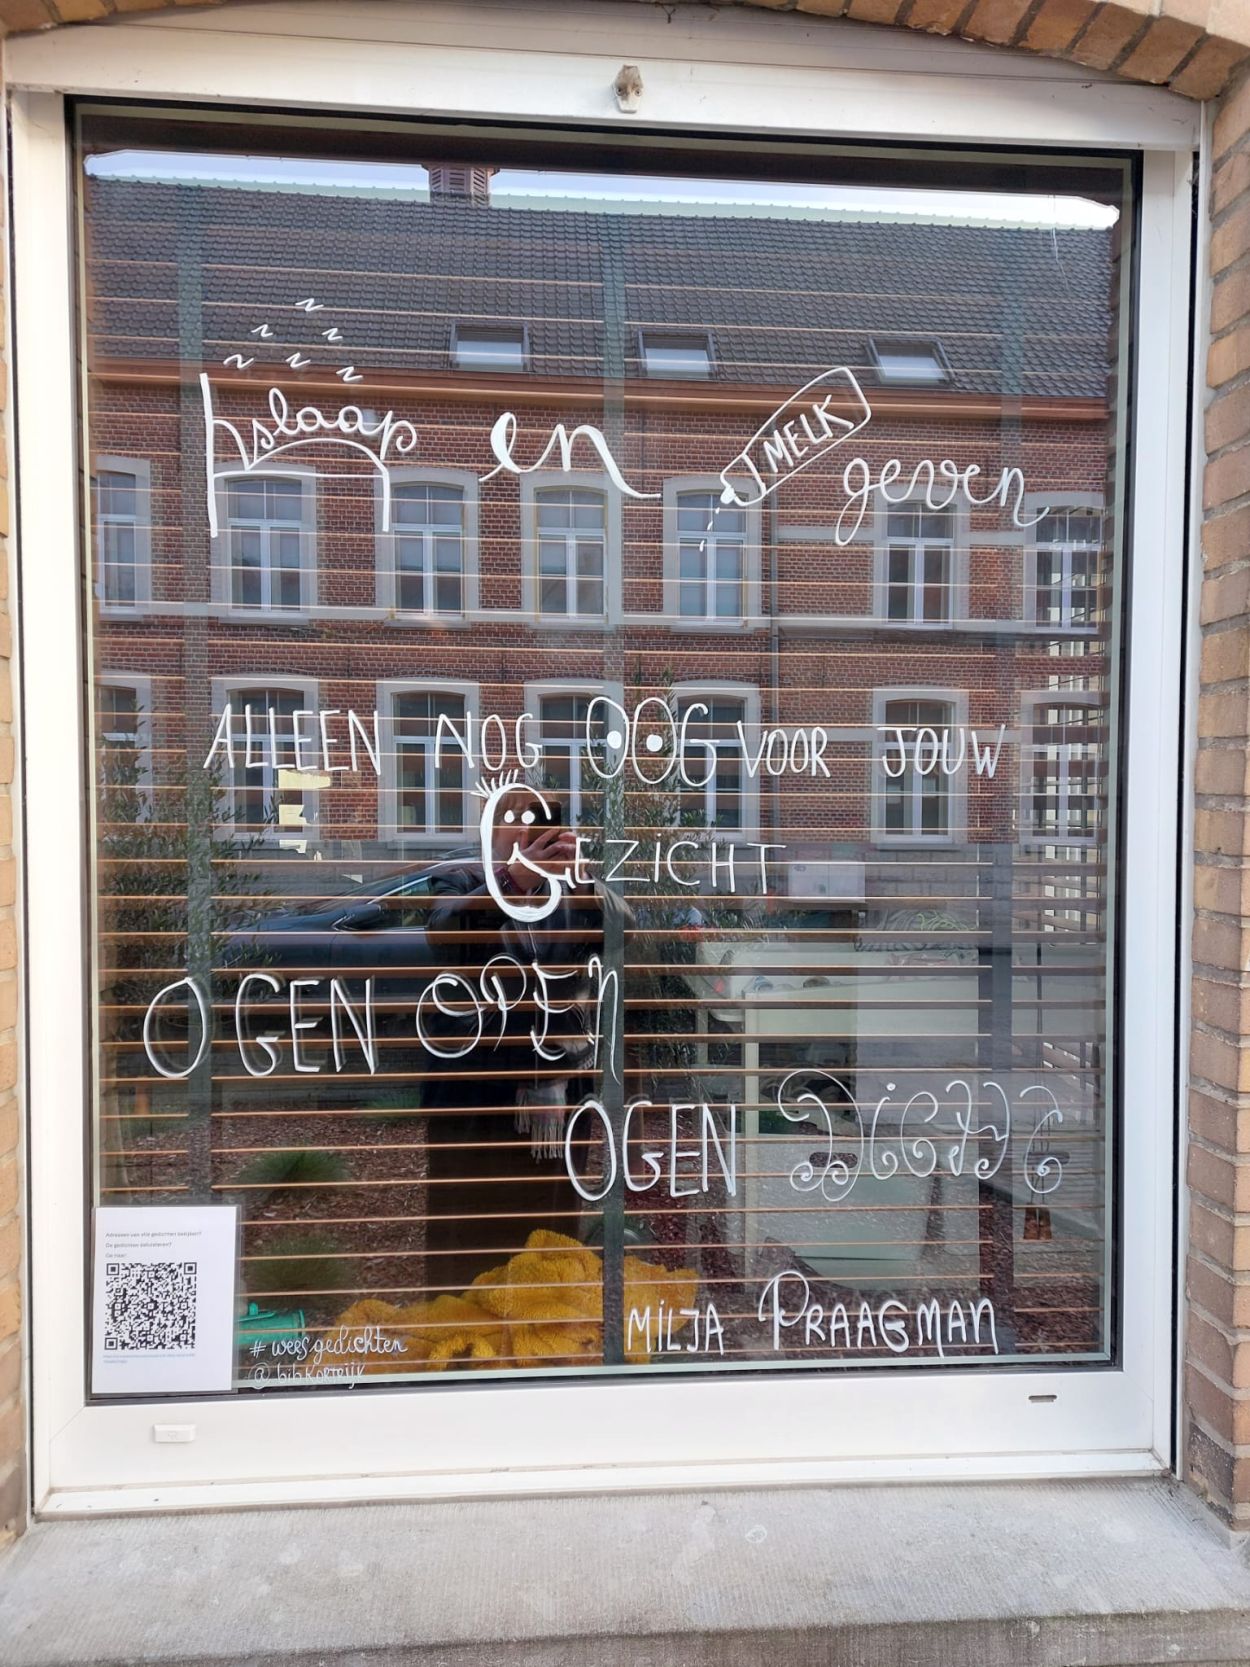 z z z z z z
slaap en MELK geven
ALLEEN NOG OOG VOOR JOUW
GEZICHT
OGEN OPEN
OGEN DICHT
MILJA PRAAGMAN
Adressen van alle gedichten bekijken?
De gedichten beluisteren?
Ga naar:
# weesgedichten
@ bib Kortrijk